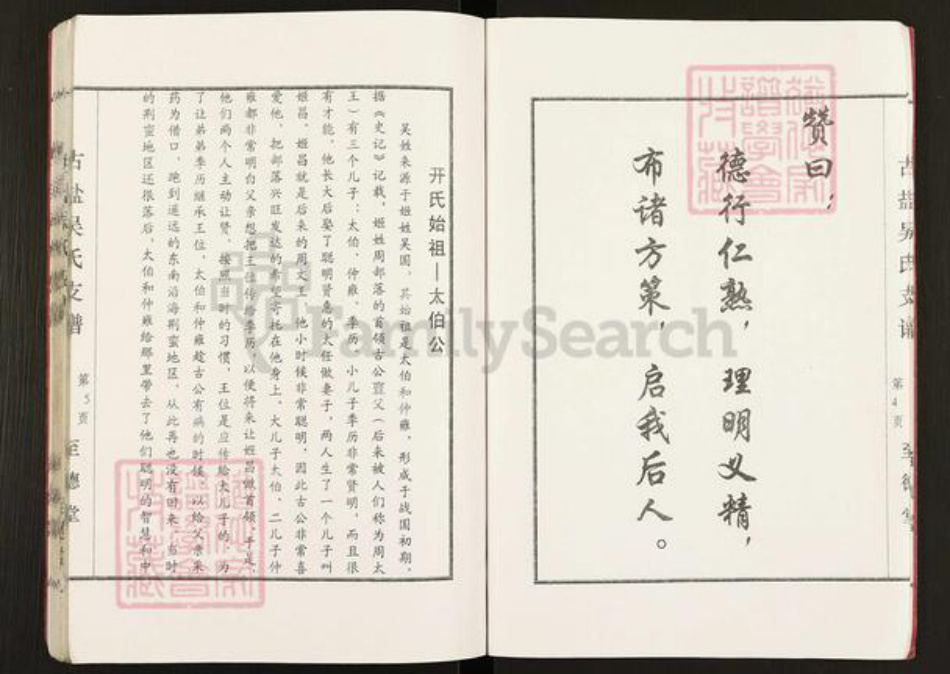 赞曰：
德行仁熟，理明义精，
布诸方策，启我后人。
古盐吴氏支谱
第4页
至德堂
开氏始祖—太伯公
吴姓来源于姬姓吴国，其始祖是太伯和仲雍，形成于战国初期。
据《史记》记载，姬姓周部落的首领古公亶父（后来被人们称为周太
王）有三个儿子：太伯、仲雍、季历。小儿子季历非常贤明，而且很
有才能。他长大后娶了聪明贤惠的太任做妻子，两人生了一个儿子叫
姬昌。姬昌就是后来的周文王，他小时候非常聪明，因此古公非常喜
爱他，把部落兴旺发达的希望寄托在他身上。大儿子太伯、二儿子仲
雍都非常明白父亲想把王位传给季历，以便将来让姬昌做首领，于是，
他们两个人主动让贤。按照当时的习惯，王位是应传给大儿子的，为
了让弟弟季历继承王位，太伯和仲雍趁古公有病的时候，以给父亲采
药为借口，跑到遥远的东南沿海荆蛮地区，从此再也没有回来。当时
的荆蛮地区还很落后，太伯和仲雍给那里带去了他们聪明的智慧和中
古盐吴氏支谱
第5页
至德堂
FamilySearch